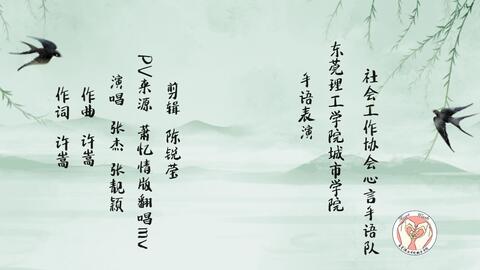 社会工作协会心言手语队
东莞理工学院城市学院
手语表演
剪辑 陈锐莹
PV来源 萧忆情版翻唱mv
演唱 张杰 张靓颖
作曲 许嵩
作词 许嵩